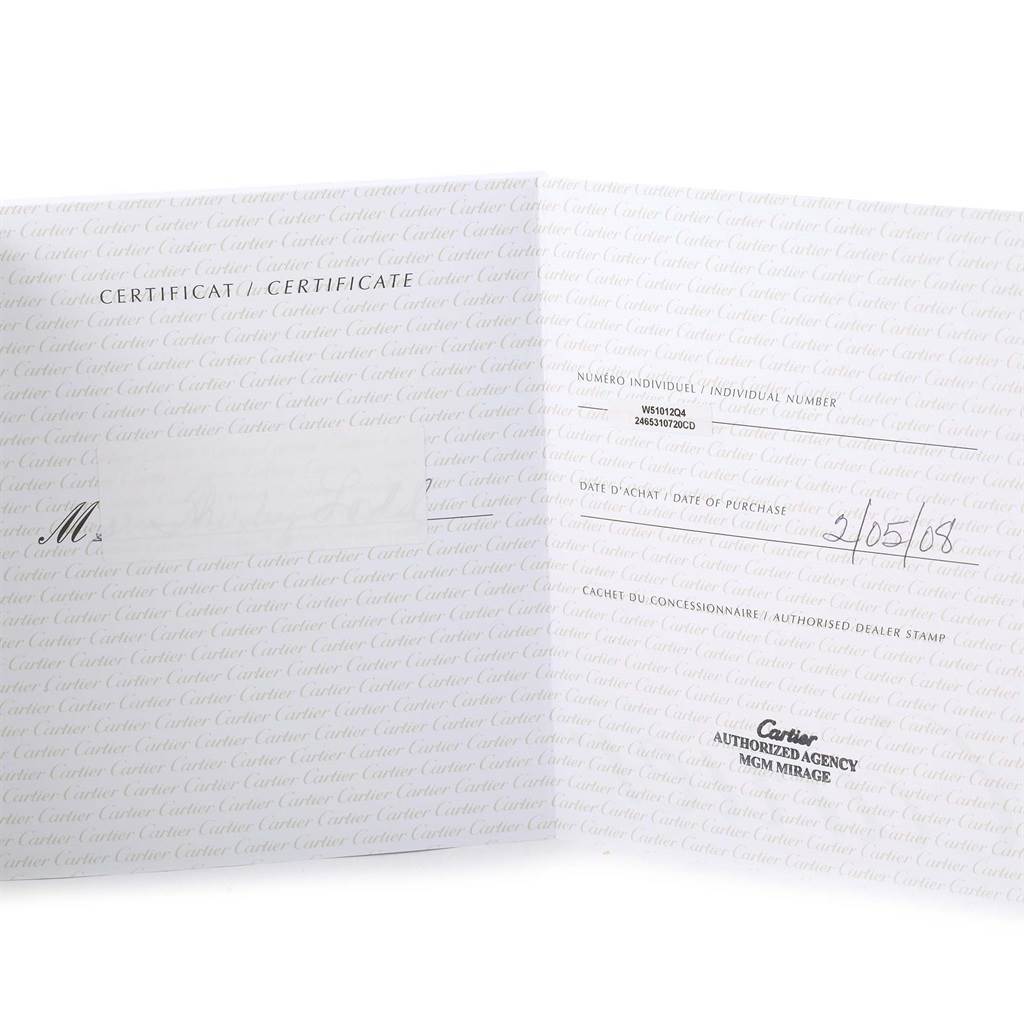 CERTIFICAT / CERTIFICATE
M
NUMÉRO INDIVIDUEL / INDIVIDUAL NUMBER
W51012Q4
2465310720CD
DATE D'ACHAT / DATE OF PURCHASE
2/05/08
CACHET DU CONCESSIONNAIRE / AUTHORISED DEALER STAMP
Cartier
AUTHORIZED AGENCY
MGM MIRAGE